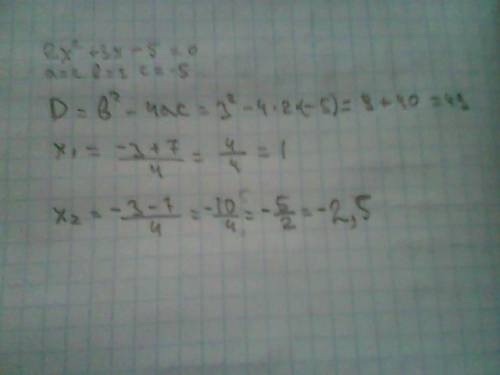 2x² + 3x - 5 = 0
a = 2 в = 3 c = -5
D = в² - 4ac = 3² - 4 · 2 · (-5) = 9 + 40 = 49
x₁ = (-3 + 7)/4 = 4/4 = 1
x₂ = (-3 - 7)/4 = -10/4 = -5/2 = -2,5